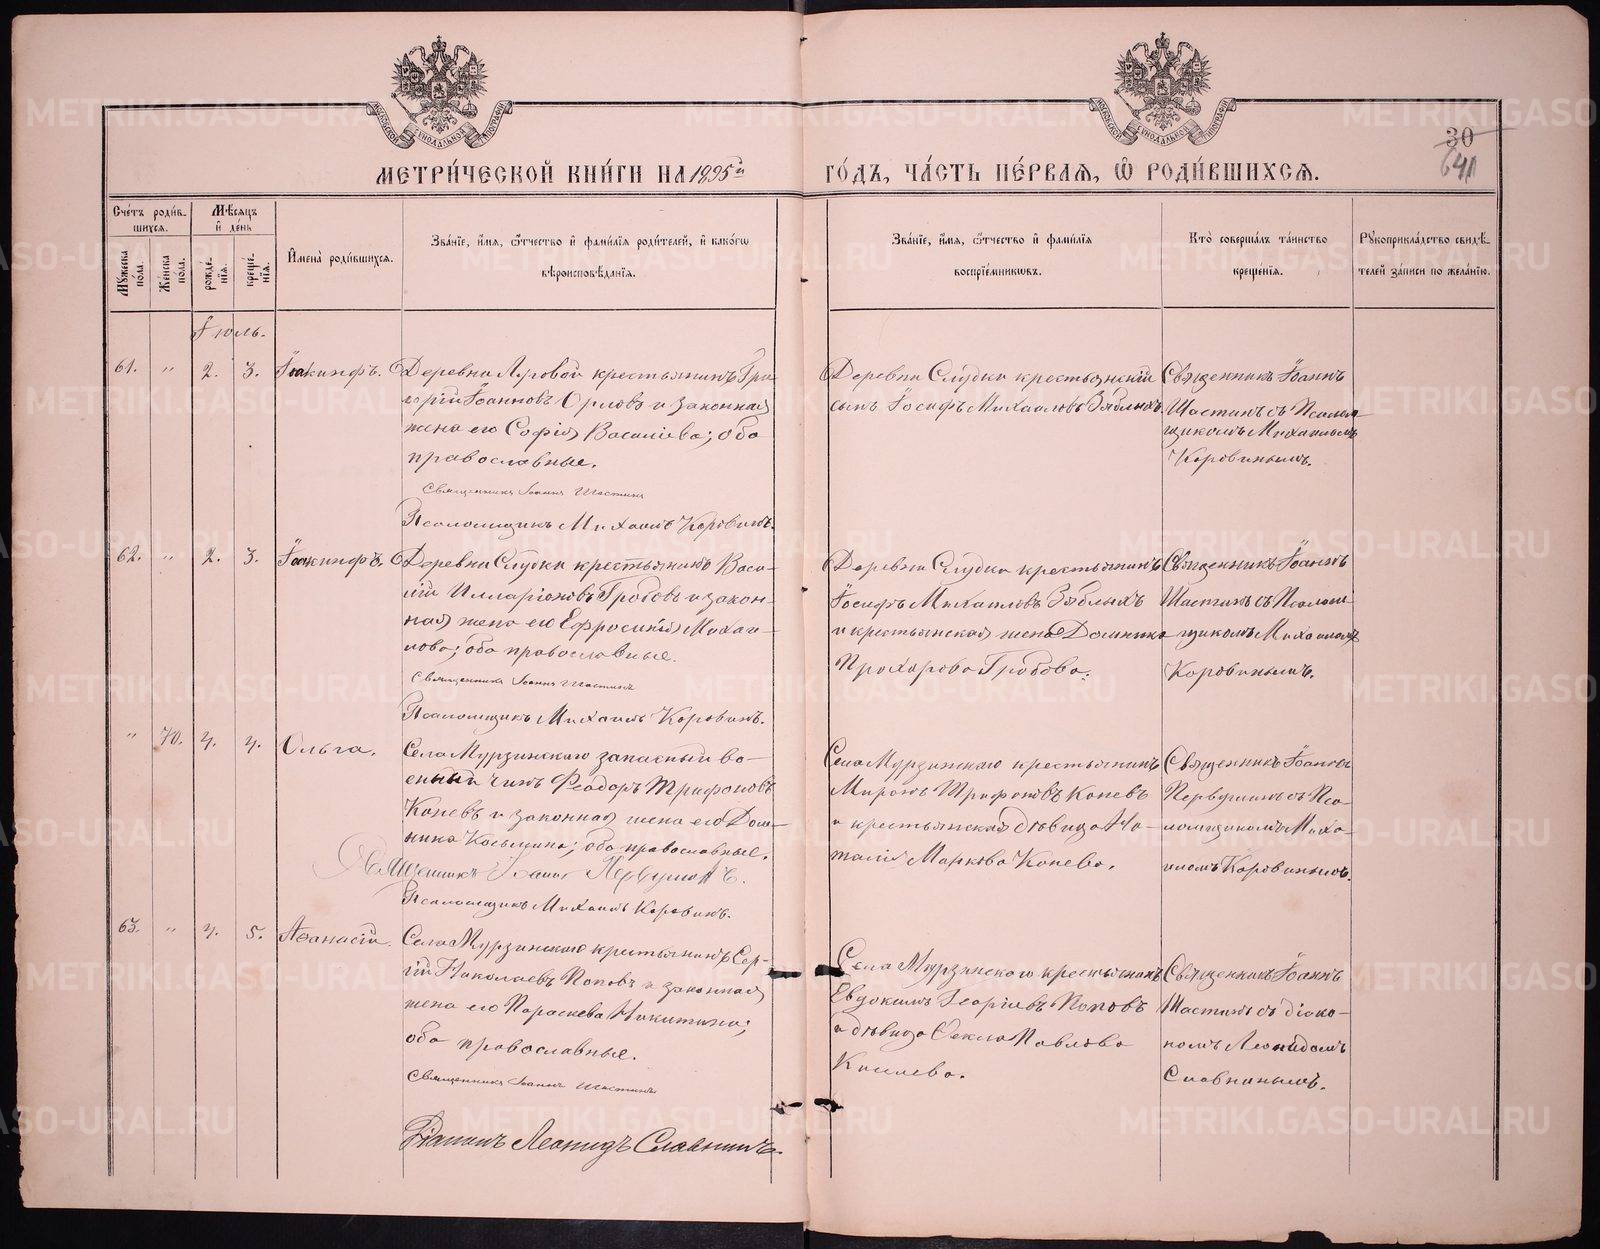 МЕТРИ́ЧЕСКОЙ КНИ́ГИ НА 1895й ГО́ДЪ, ЧА́СТЬ ПЕ́РВАѦ, Ѡ҆ РОДИ́ВШИХСѦ.
30
641
Сче́тъ роди́в-
шихся.
Мѣ́сяцъ
и҆ де́нь
Мꙋ́жеска
по́ла.
Же́нска
по́ла.
рожде́-
нїѧ.
креще́-
нїѧ.
И҆мена̀ роди́вшихсѧ.
Зва́нїе, и҆́мѧ, ѻ҆́тчество и҆ фами́лїѧ роди́телей, и҆ како́гѡ
вѣроисповѣ́данїѧ.
Зва́нїе, и҆́мѧ, ѻ҆́тчество и҆ фами́лїѧ
воспрїе́мниковъ.
Кто̀ соверша́лъ та́инство
креще́нїѧ.
Рꙋкоприкла́дство свидѣ́-
телей за́писи по жела́нїю.
Іюль.
61. " 2. 3. Іоакинфъ.
Деревни Луговой крестьянинъ Гри-
горій Іоанновъ Орловъ и законная
жена его Софія Василіева; оба
православные.
Священникъ Іоаннъ Шастинъ
Псаломщикъ Михаилъ Коровинъ.
Деревни Слудки крестьянскій
сынъ Іосифъ Михаиловъ Зяблыхъ
Священникъ Іоаннъ
Шастинъ съ Псалом-
щикомъ Михаиломъ
Коровинымъ.
62. " 2. 3. Іоакинфъ.
Деревни Слудки крестьянинъ Васи-
лій Илларіоновъ Гробовъ и закон-
ная жена его Ефросинія Михаи-
лова; оба православные.
Священникъ Іоаннъ Шастинъ
Псаломщикъ Михаилъ Коровинъ.
Деревни Слудки крестьянинъ
Іосифъ Михаиловъ Зяблыхъ
и крестьянская жена Домника
Прохорова Гробова.
Священникъ Іоаннъ
Шастинъ съ Псалом-
щикомъ Михаиломъ
Коровинымъ.
" 70. 4. 4. Ольга.
Села Мурзинскаго запасный во-
енный чинъ Ѳеодоръ Трифоновъ
Копевъ и законная жена его Дом-
ника Косьмина; оба православные.
Священникъ Іоаннъ Первушинъ.
Псаломщикъ Михаилъ Коровинъ.
Села Мурзинскаго крестьянинъ
Миронъ Трифоновъ Копевъ
и крестьянская дѣвица На-
талія Маркова Копева.
Священникъ Іоаннъ
Первушинъ съ Пса-
ломщикомъ Миха-
иломъ Коровинымъ.
63. " 4. 5. Аѳанасій.
Села Мурзинскаго крестьянинъ Сер-
гій Николаевъ Поповъ и законная
жена его Параскева Никитина;
оба православные.
Священникъ Іоаннъ Шастинъ
Діаконъ Леонидъ Славнинъ.
Села Мурзинскаго крестьянинъ
Евдокимъ Георгіевъ Поповъ
и дѣвица Ѳекла Павлова
Киселева.
Священникъ Іоаннъ
Шастинъ съ діако-
номъ Леонидомъ
Славнинымъ.
METRIKI.GASO-URAL.RU